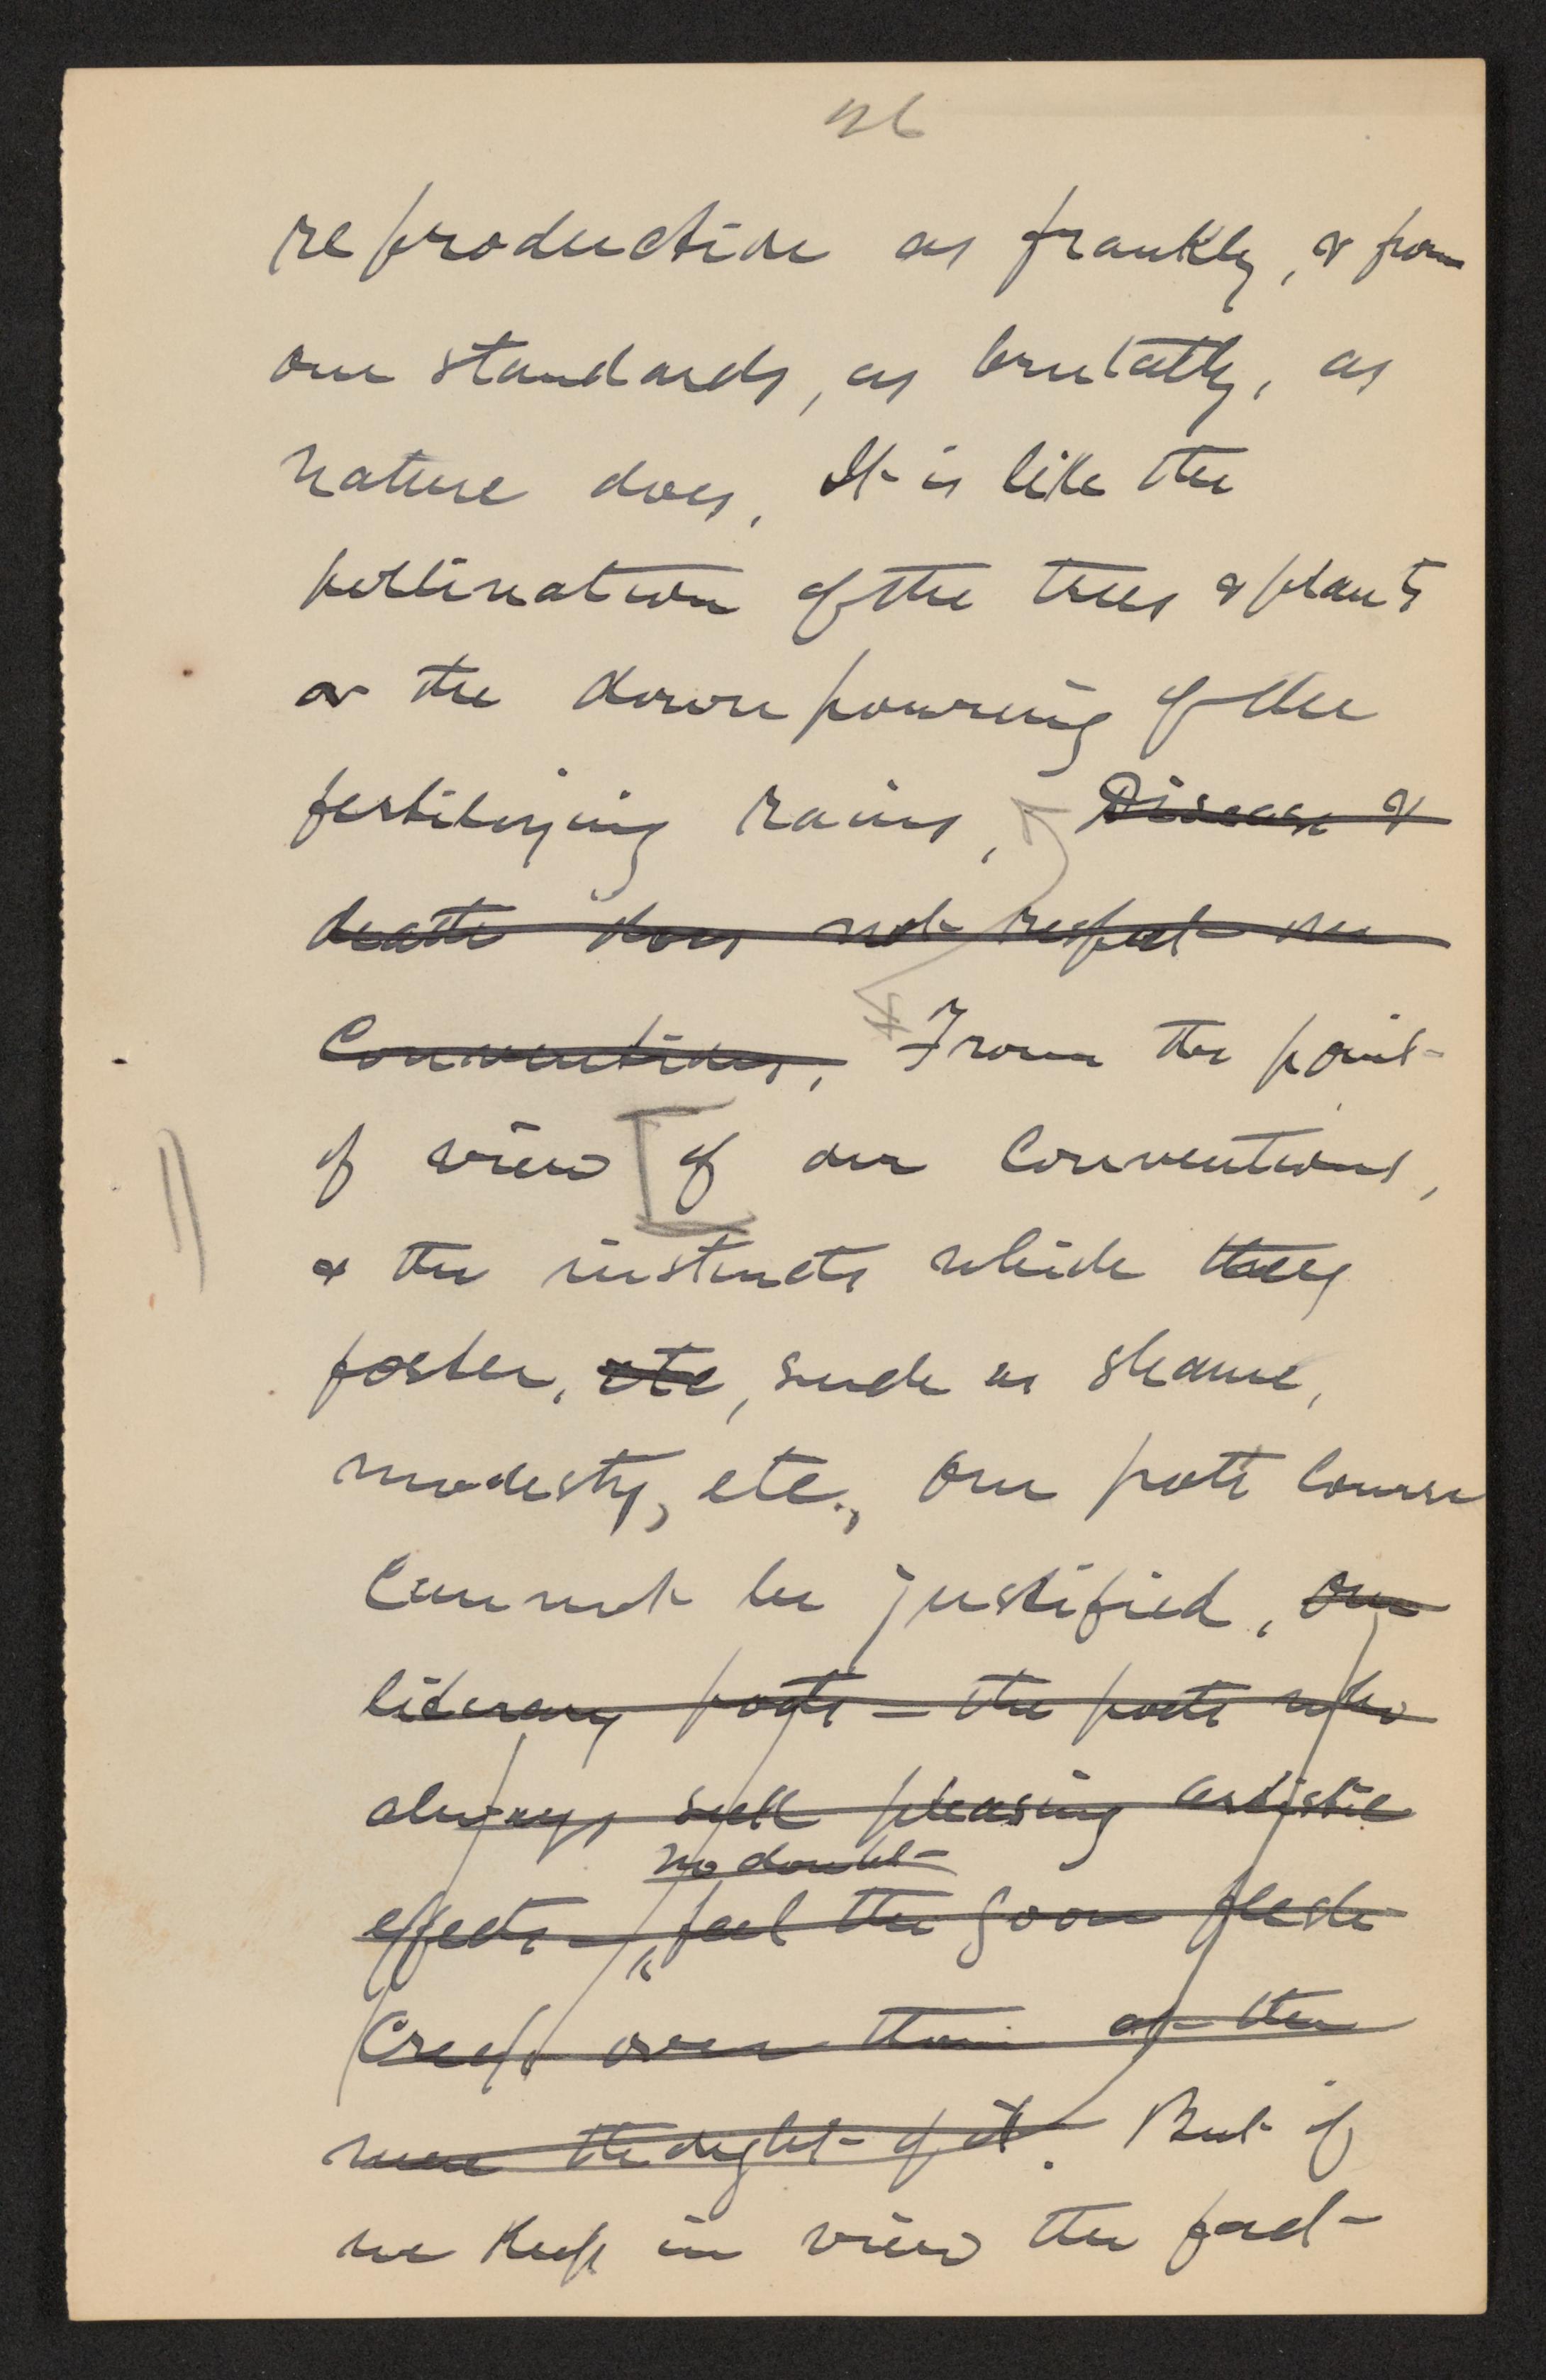 26
reproduction as frankly, & from
our standards, as brutally, as
nature does. It is like the
pollination of the trees & plants
or the down pouring of the
fertilizing rains. Disease &
death does not respect our
Conventions. From the point
of view [of our Conventions,
& the instincts which they
foster, etc, such as shame,
modesty, etc., our poets course
Cannot be justified. Our
literary poets = the poets who
always seek pleasing artistic
no doubt
effects = feel the goose flesh
Creep over them at the
mere thought of it. But if
we Keep in view the fact